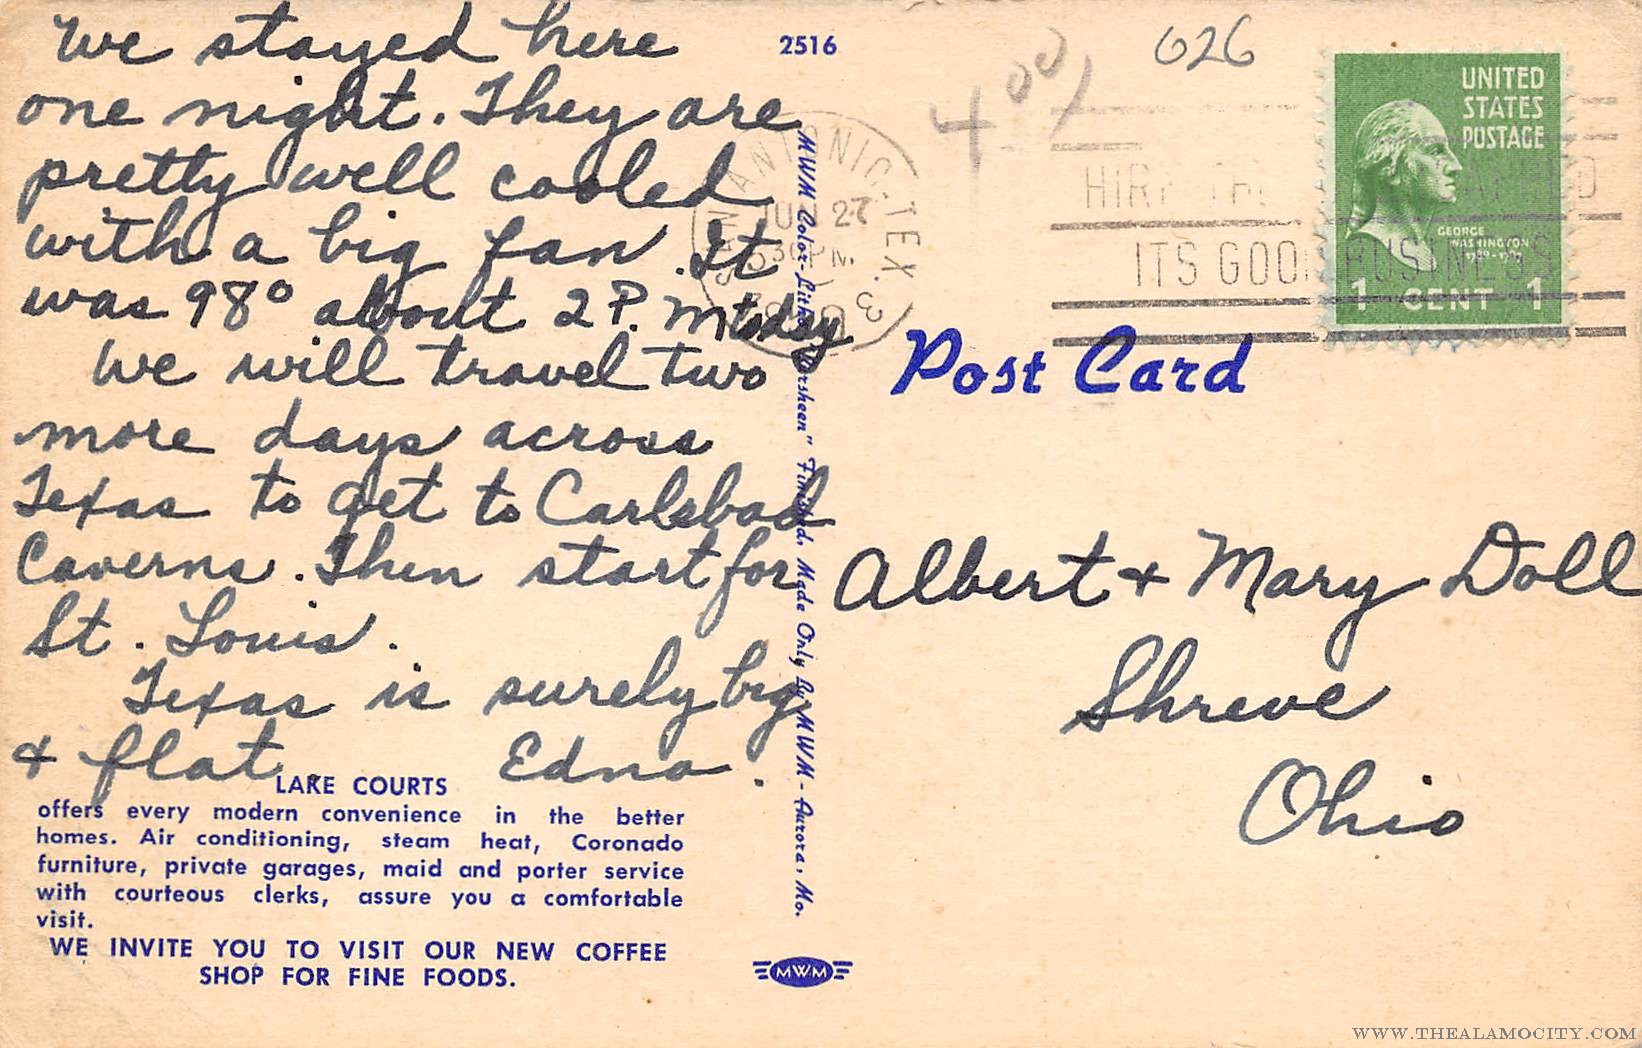 We stayed here
one night. They are
pretty well cooled
with a big fan. It
was 98° about 2 P.M. today
We will travel two
more days across
Texas to get to Carlsbad
Caverns. Then start for
St. Louis.
Texas is surely big
& flat. Edna.
LAKE COURTS
offers every modern convenience in the better
homes. Air conditioning, steam heat, Coronado
furniture, private garages, maid and porter service
with courteous clerks, assure you a comfortable
visit.
WE INVITE YOU TO VISIT OUR NEW COFFEE
SHOP FOR FINE FOODS.
2516
MWM Color-Litho Finished. Made Only By MWM - Aurora, Mo.
MWM
SAN ANTONIO, TEX. 3
27
PM
400
626
HIRE
ITS GOOD BUSINESS
UNITED
STATES
POSTAGE
GEORGE
WASHINGTON
1 CENT 1
Post Card
Albert & Mary Doll
Shreve
Ohio
WWW.THEALAMOCITY.COM